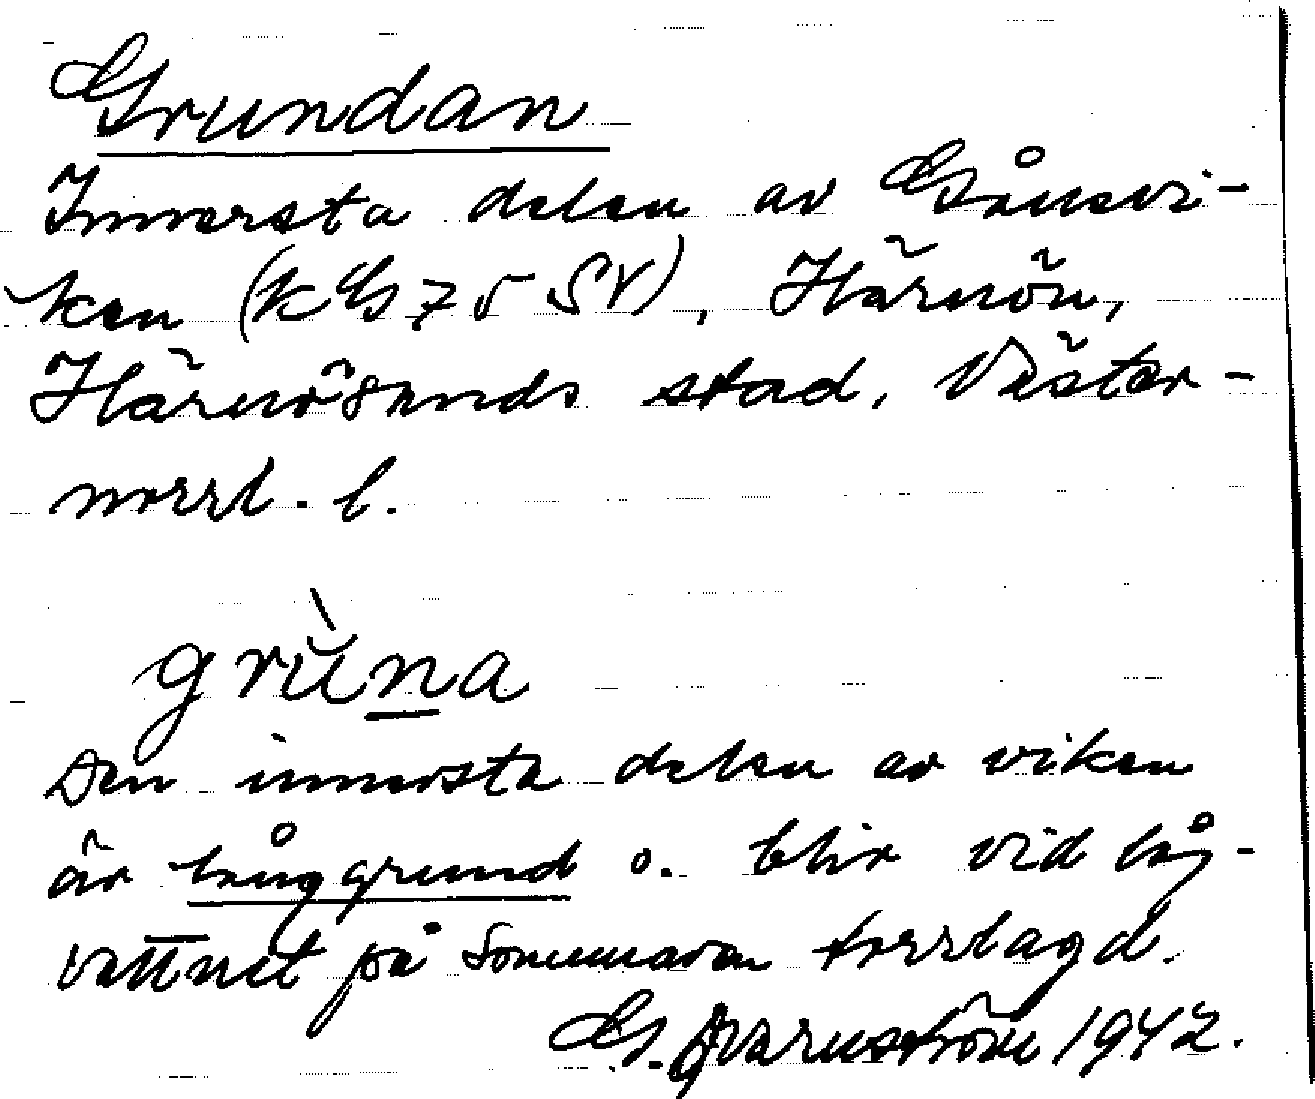 Grundan
Innersta delen av Gånsvi-
ken (k G 75 SV), Härnön,
Härnösands stad, Väster-
norrl. l.
grùna
Den innersta delen av viken
är långgrund o. blir vid låg-
vattnet på sommaren torrlagd.
G. Qvarnström 1942.